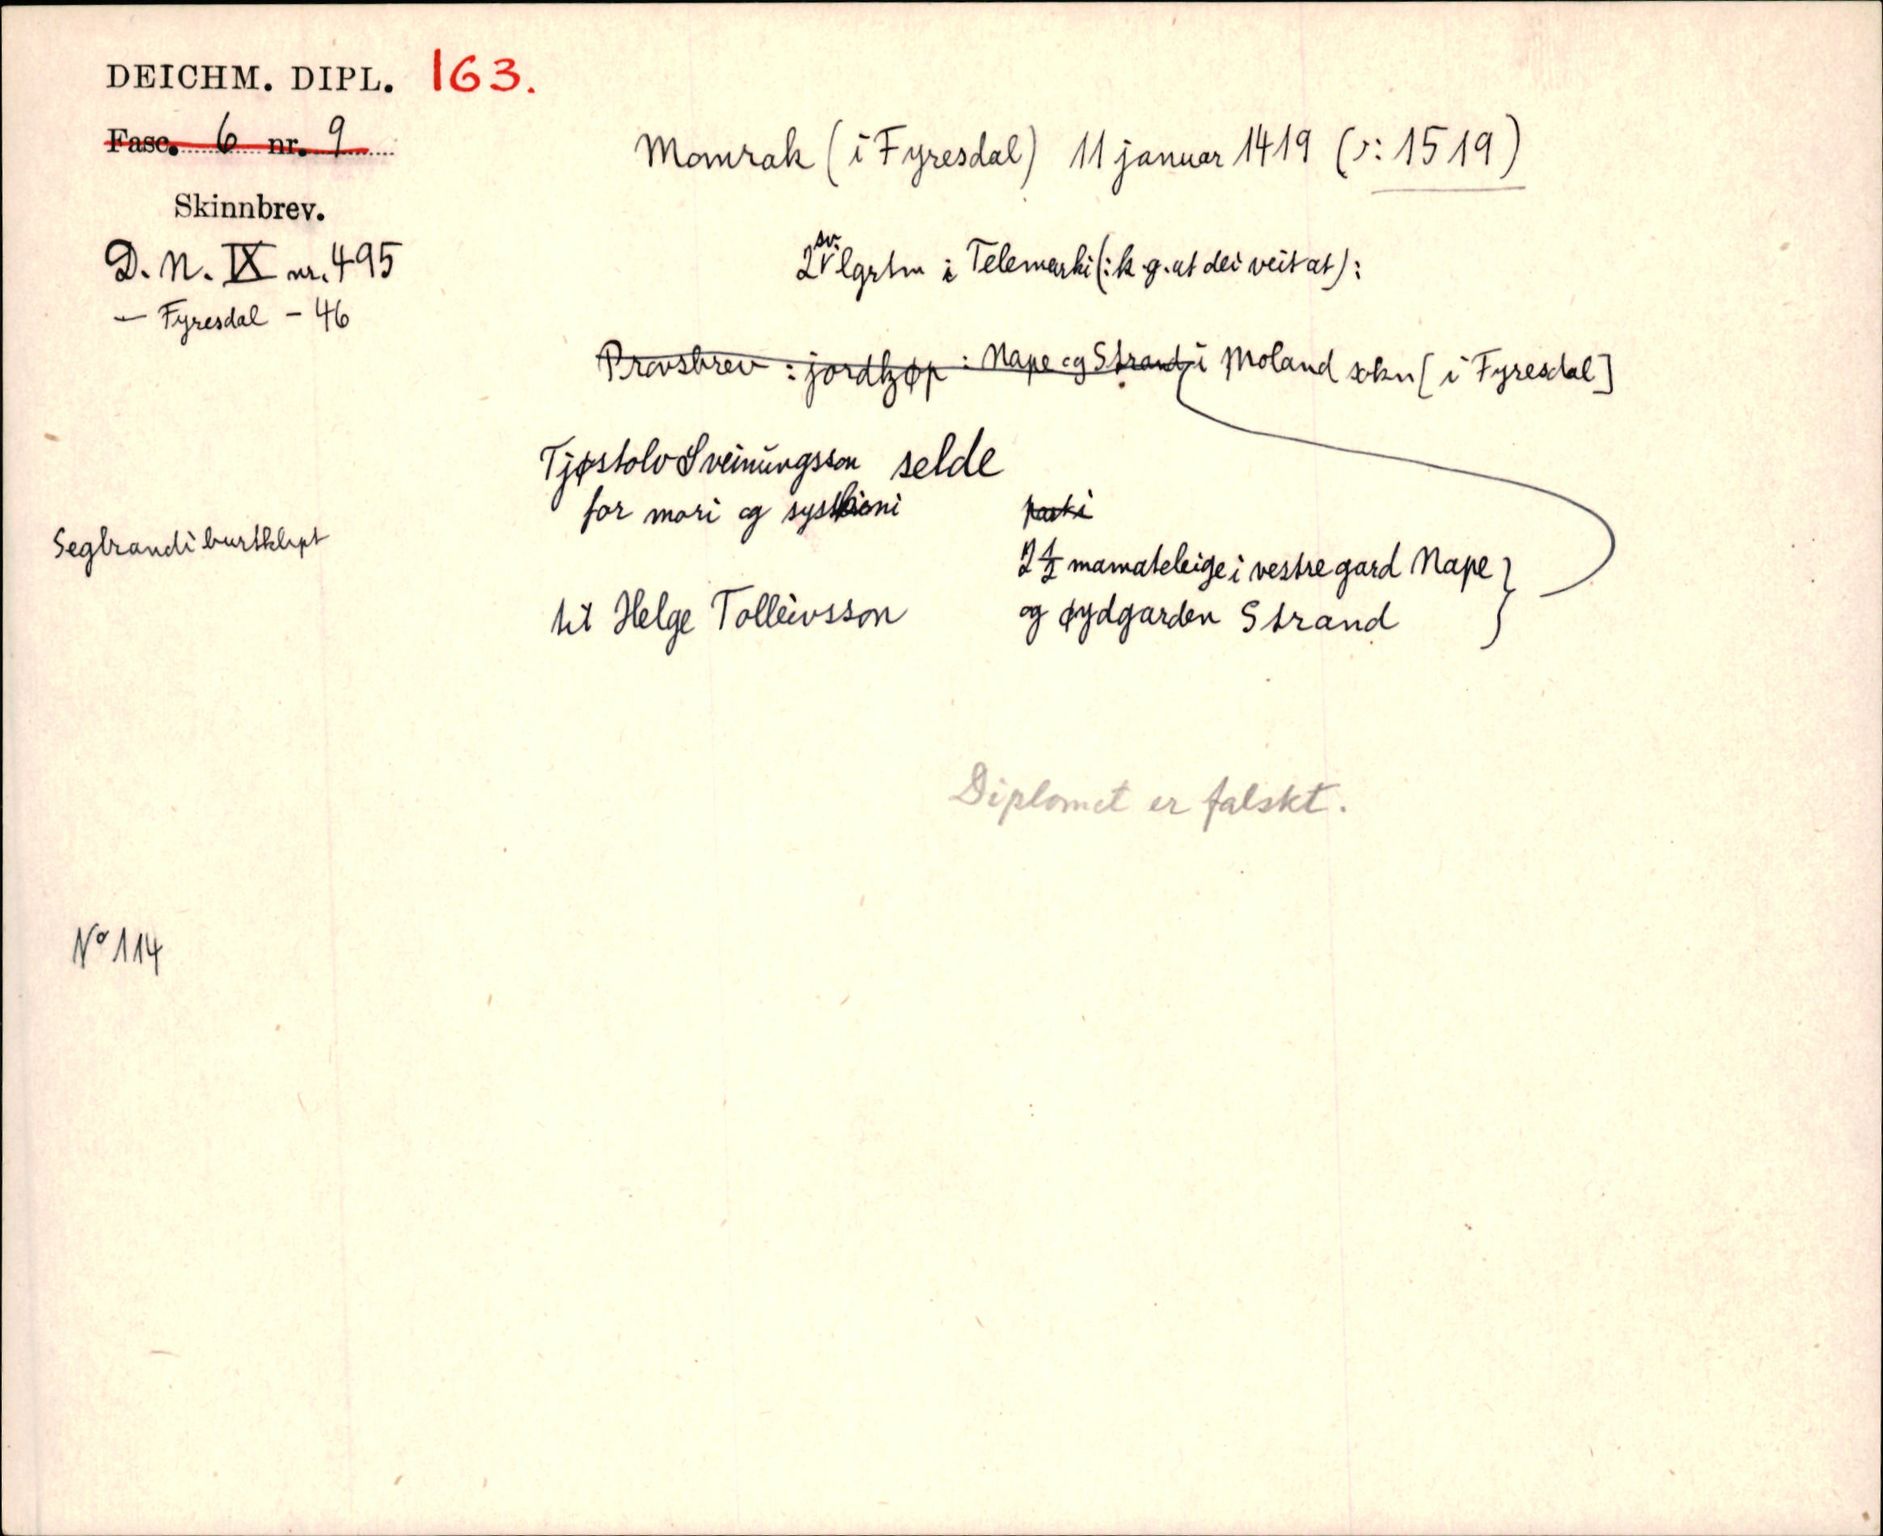 DEICHM. DIPL. 163.
Fasc. 6 nr. 9
Skinnbrev.
D. N. IX nr. 495
— Fyresdal - 46
Momrak (i Fyresdal) 11 januar 1419 (ɔ: 1519)
2 sv. lgrtm i Telemarki (: k. g. at dei veit at) :
Provsbrev : jordkjøp : Nape og Strand i Moland sokn [i Fyresdal]
Tjøstolv Sveinungsson selde
for mori og syskioni
parti
2 1/2 mamateleige i vestre gard Nape
og øydgarden Strand
til Helge Tolleivsson
Seglrandi burtklipt
Diplomet er falskt.
Nº 114